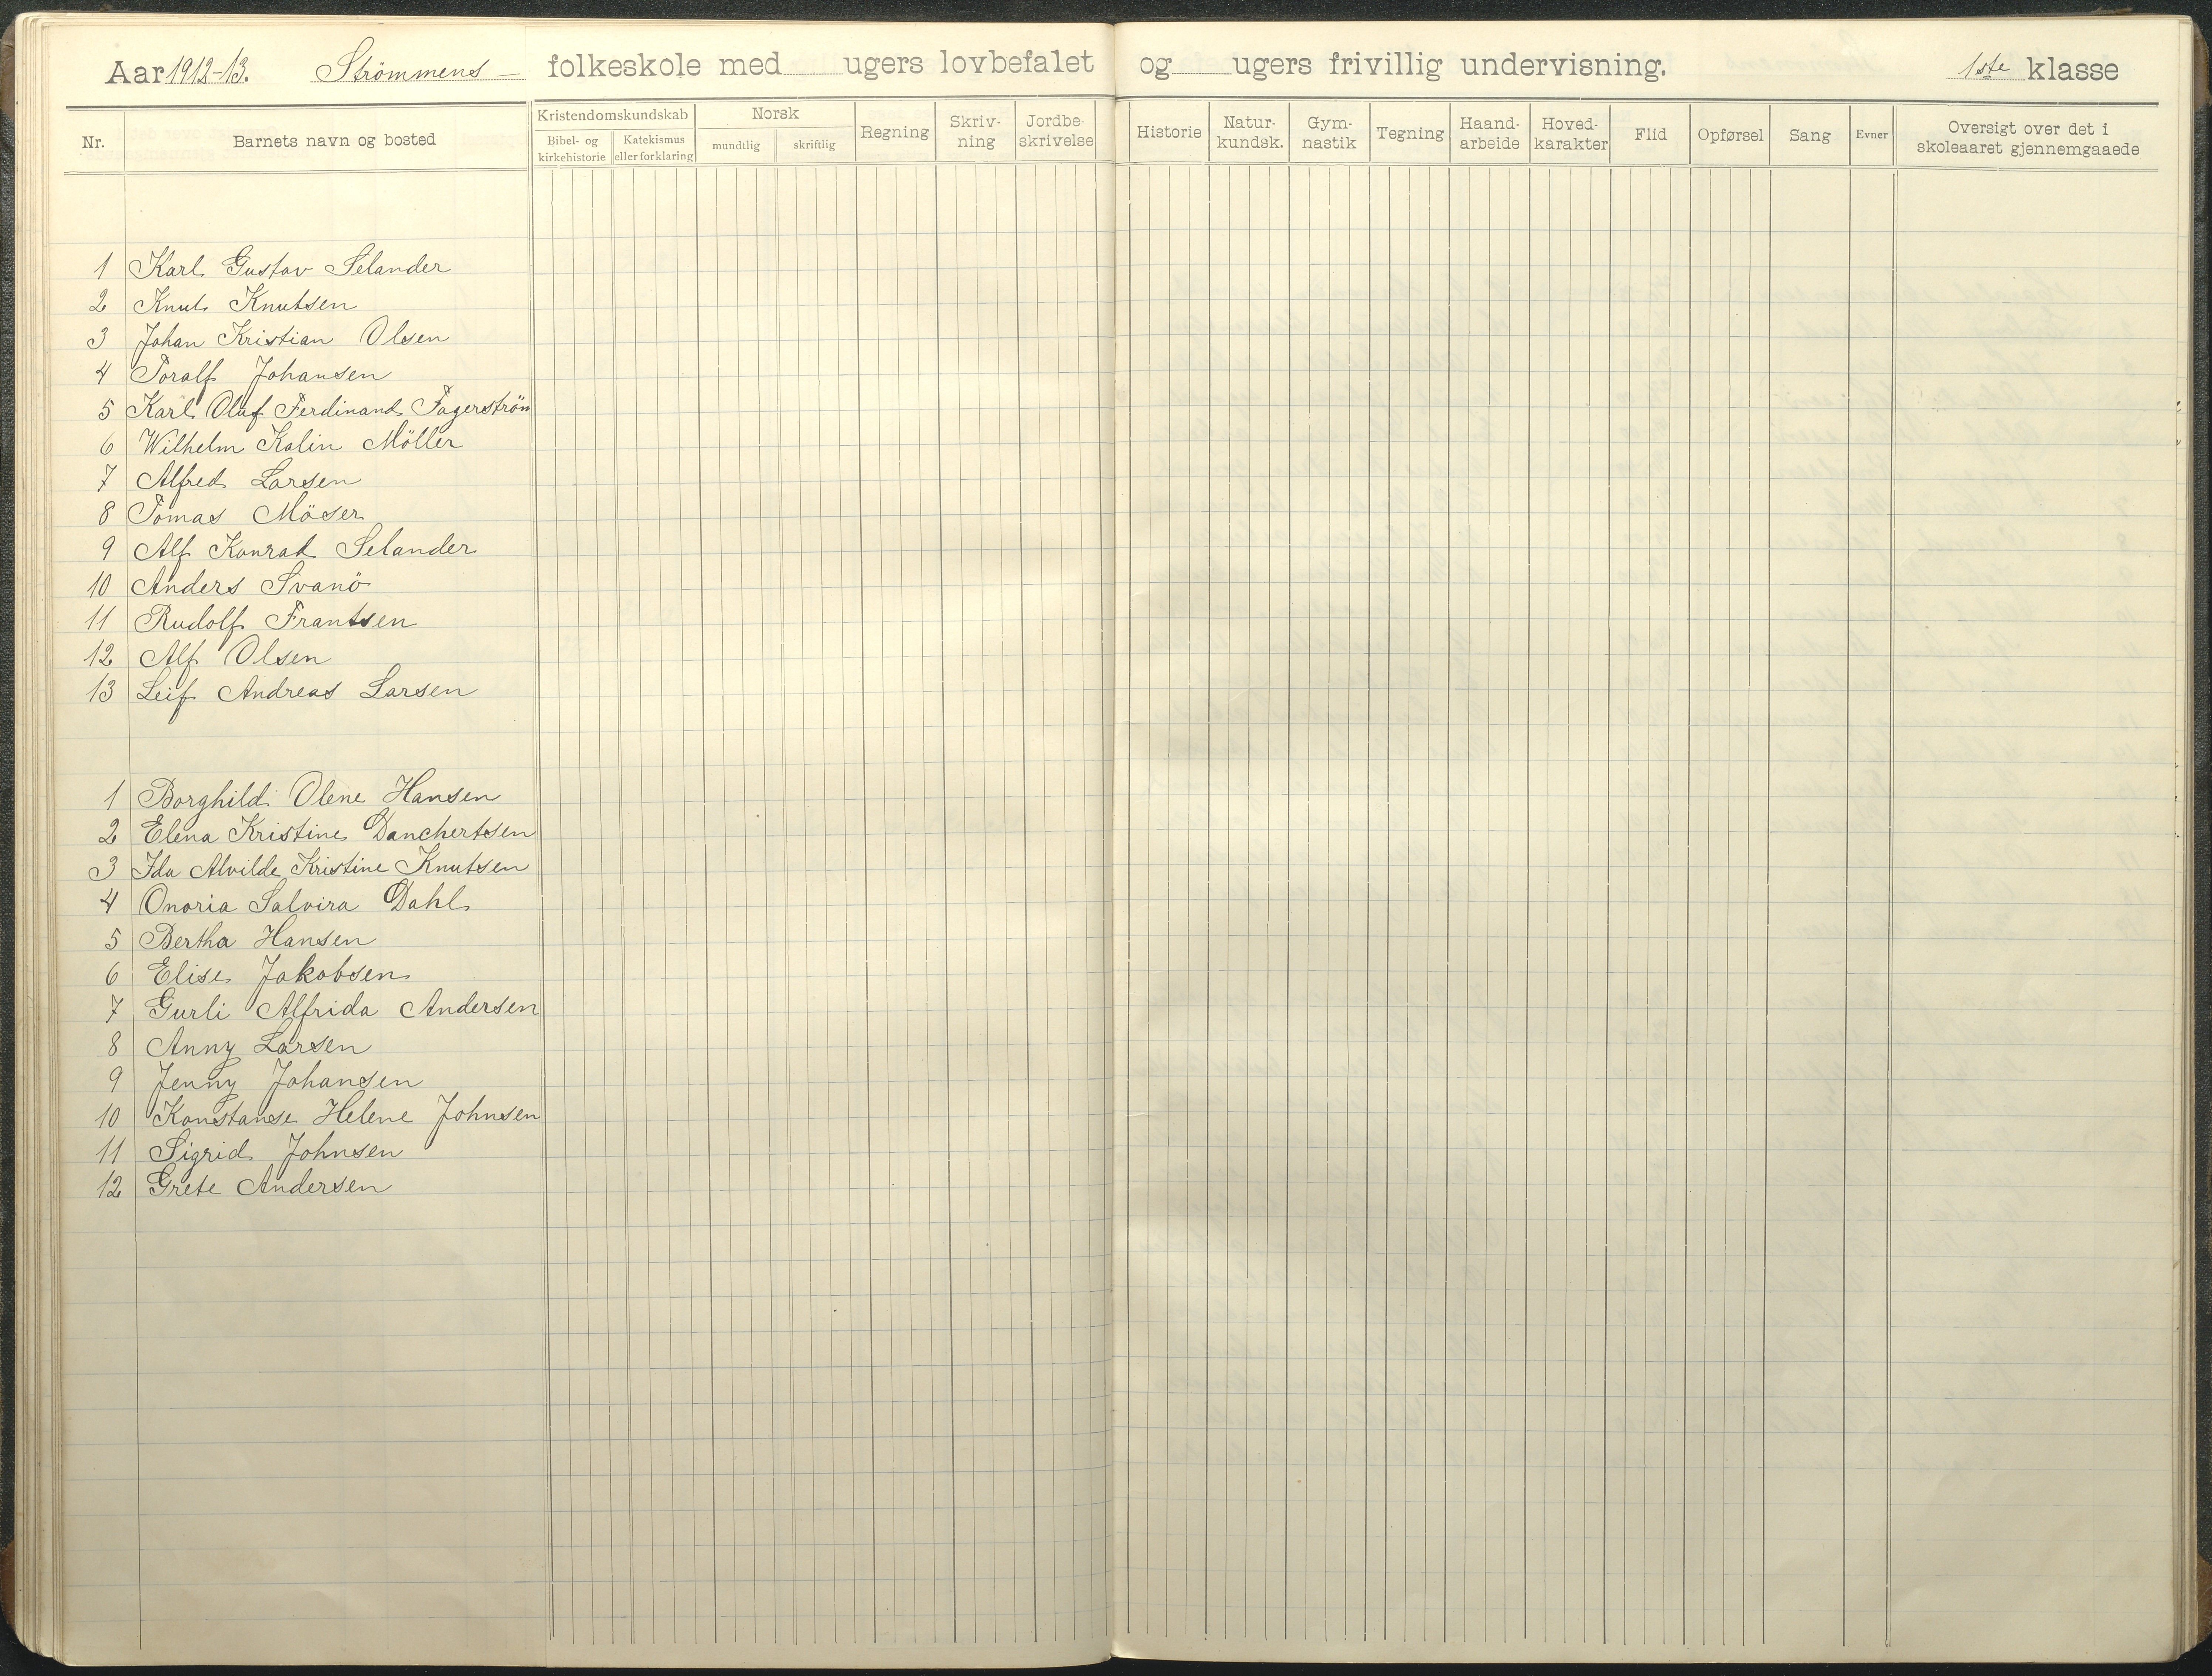 Aar 1912-13. Strömmens folkeskole med ugers lovbefalet og ugers frivillig undervisning. 1ste klasse
Nr. Barnets navn og bosted Kristendomskundskab Bibel- og kirkehistorie Katekismus eller forklaring Norsk mundtlig skriftlig Regning Skriv- ning Jordbe- skrivelse Historie Natur- kundsk. Gym- nastik Tegning Haand- arbeide Hoved- karakter Flid Opførsel Sang Evner Oversigt over det i skoleaaret gjennemgaaede
1 Karl Gustav Selander
2 Knut Knutsen
3 Johan Kristian Olsen
4 Toralf Johansen
5 Karl Olaf Ferdinand Fagerström
6 Wilhelm Kalin Möller
7 Alfred Larsen
8 Tomas Möser
9 Alf Konrad Selander
10 Anders Svanö
11 Rudolf Frantsen
12 Alf Olsen
13 Leif Andreas Larsen
1 Borghild Olene Hansen
2 Elena Kristine Danchertsen
3 Ida Alvilde Kristine Knutsen
4 Onoria Salvira Dahl
5 Bertha Hansen
6 Elise Jakobsen
7 Gurli Alfrida Andersen
8 Anny Larsen
9 Jenny Johansen
10 Konstanse Helene Johnsen
11 Sigrid Johnsen
12 Grete Andersen